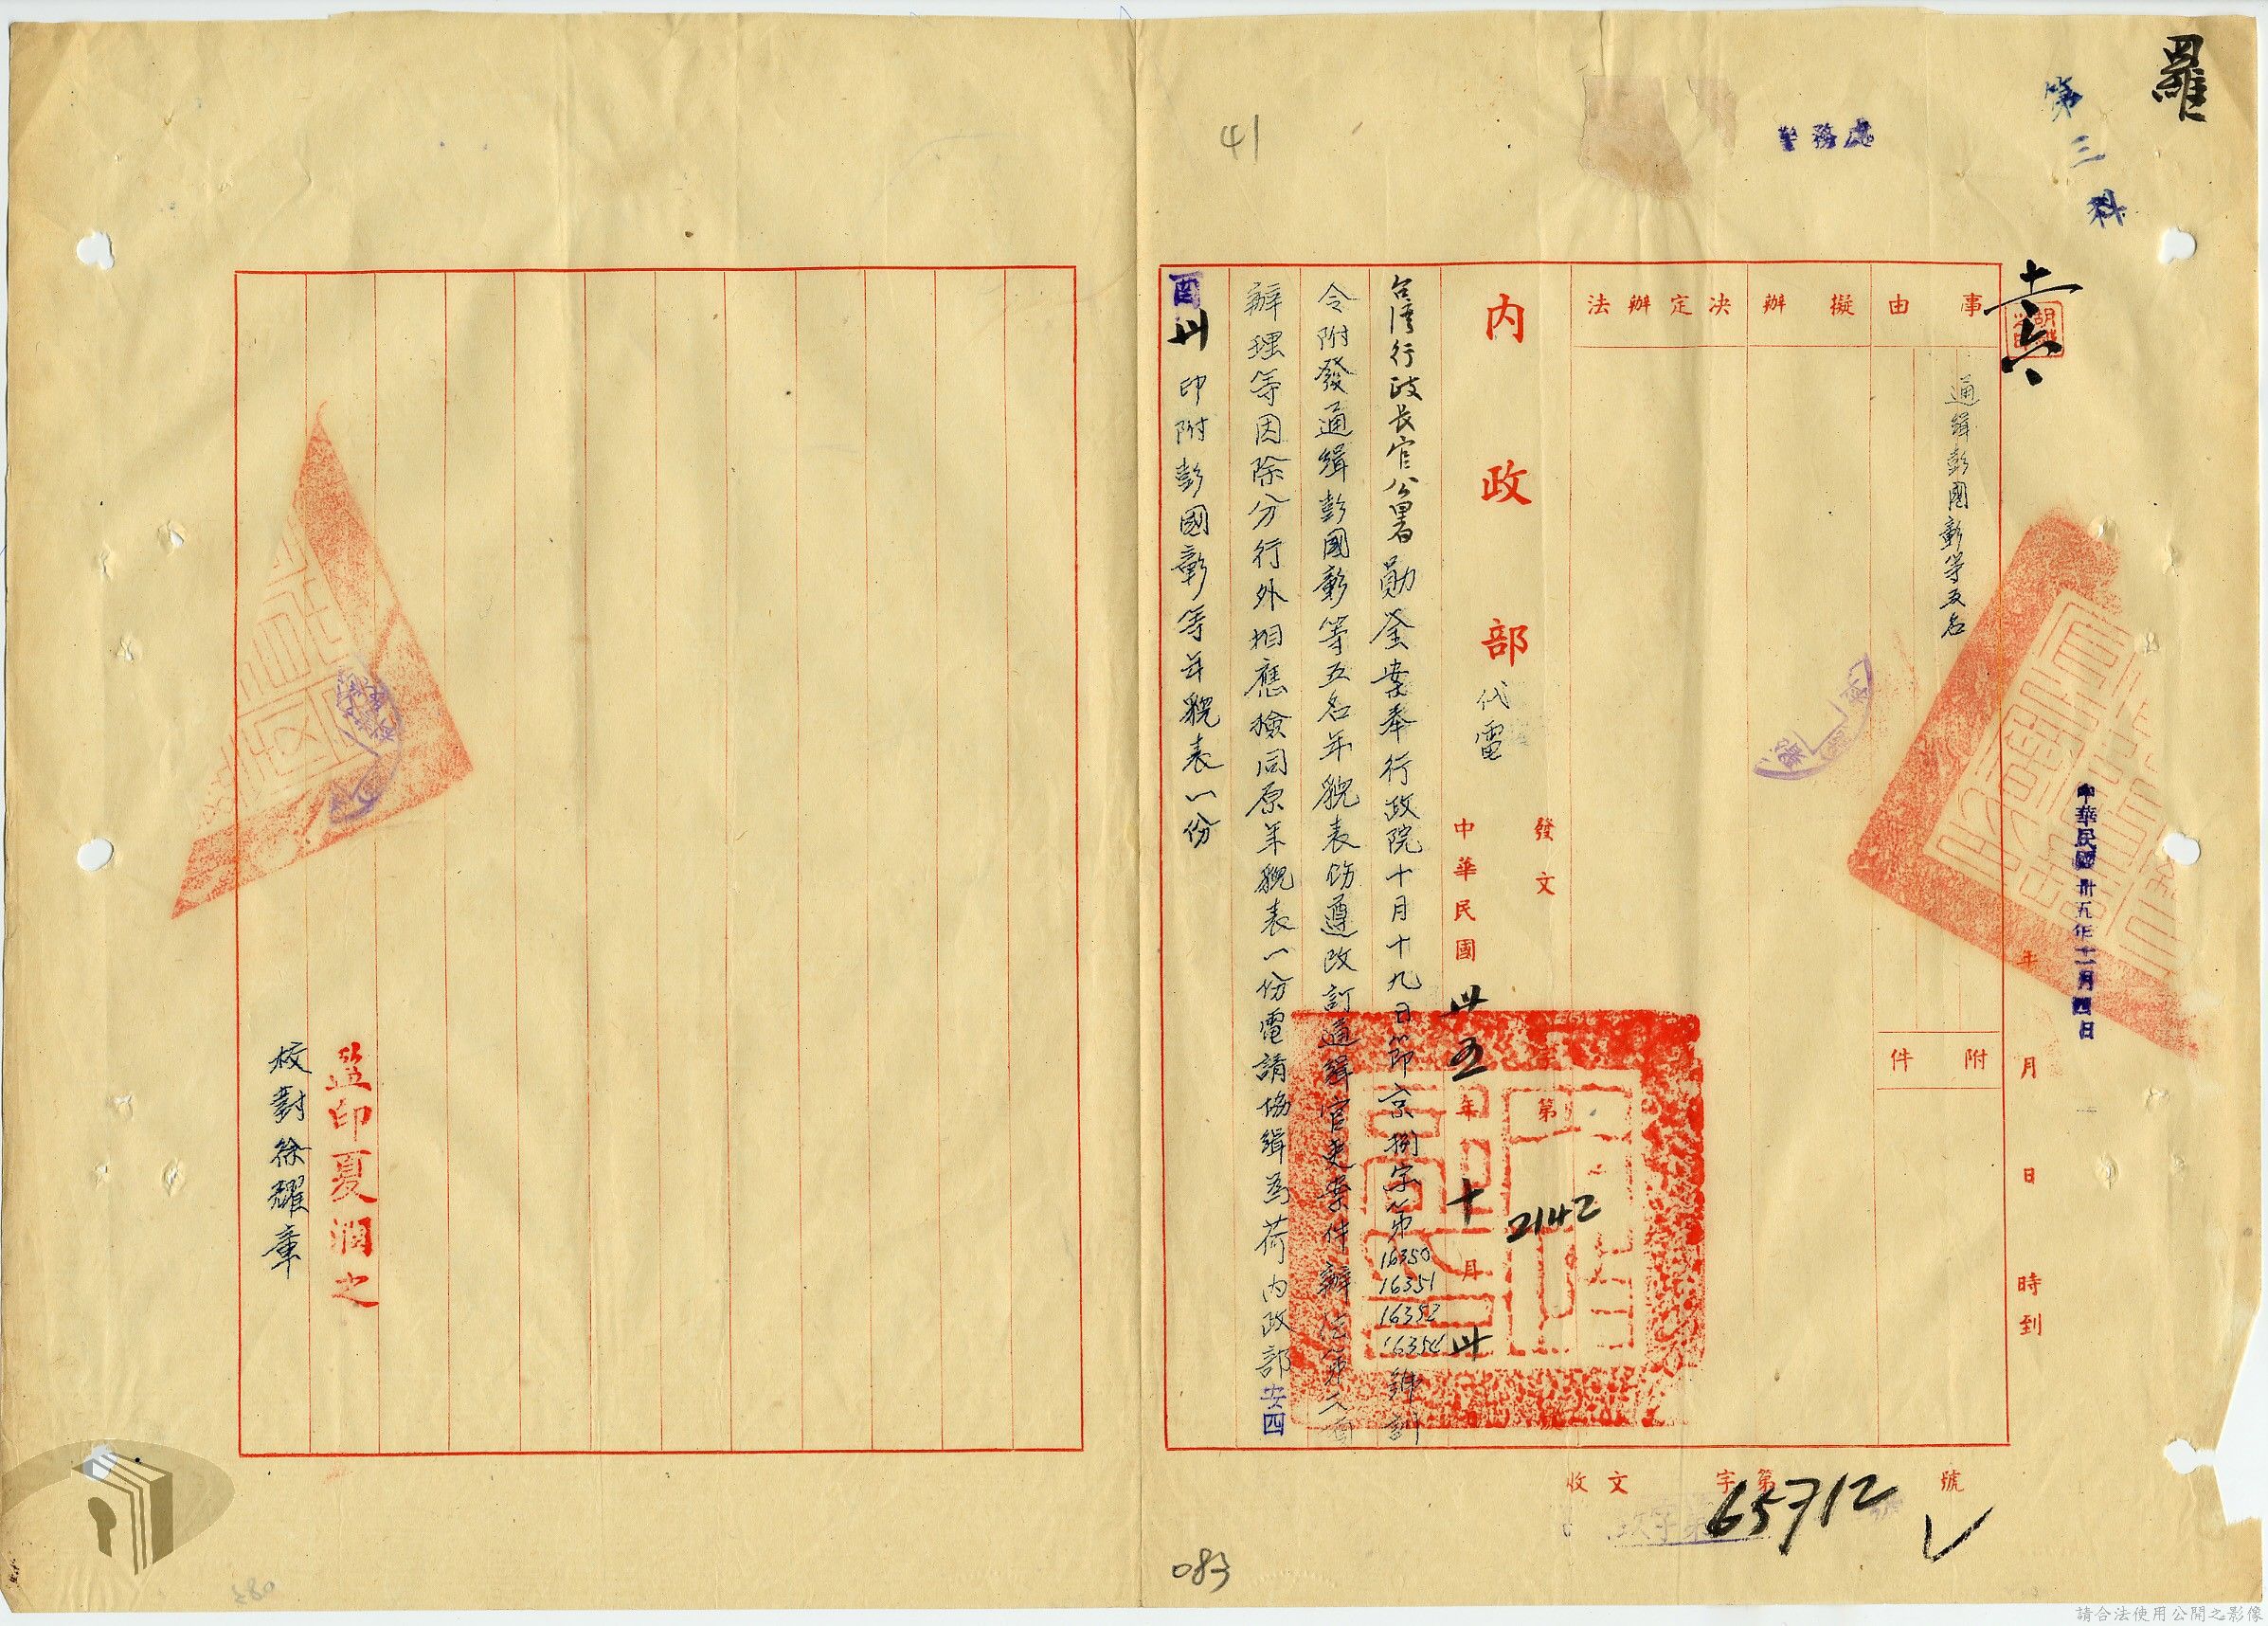 羅
第三科
警務處
41
十六
中華民國卅五年十一月四日
年月日時到
事由
通緝彭國彰等五名
附件
擬辦
決定辦法
內政部代電
發文
字第2142號
中華民國卅五年十月卅日
台灣行政長官公署勛鑒案奉行政院十月十九日節京捌字第16350 16351 16352 16354號訓
令附發通緝彭國彰等五名年貌表飭遵改訂通緝官吏案件辦法第二項
辦理等因除分行外相應檢同原年貌表一份電請協緝為荷內政部安四
酉卅印附彭國彰等年貌表一份
收文字第65712號
083
監印夏潤之
校對徐耀章
請合法使用公開之影像